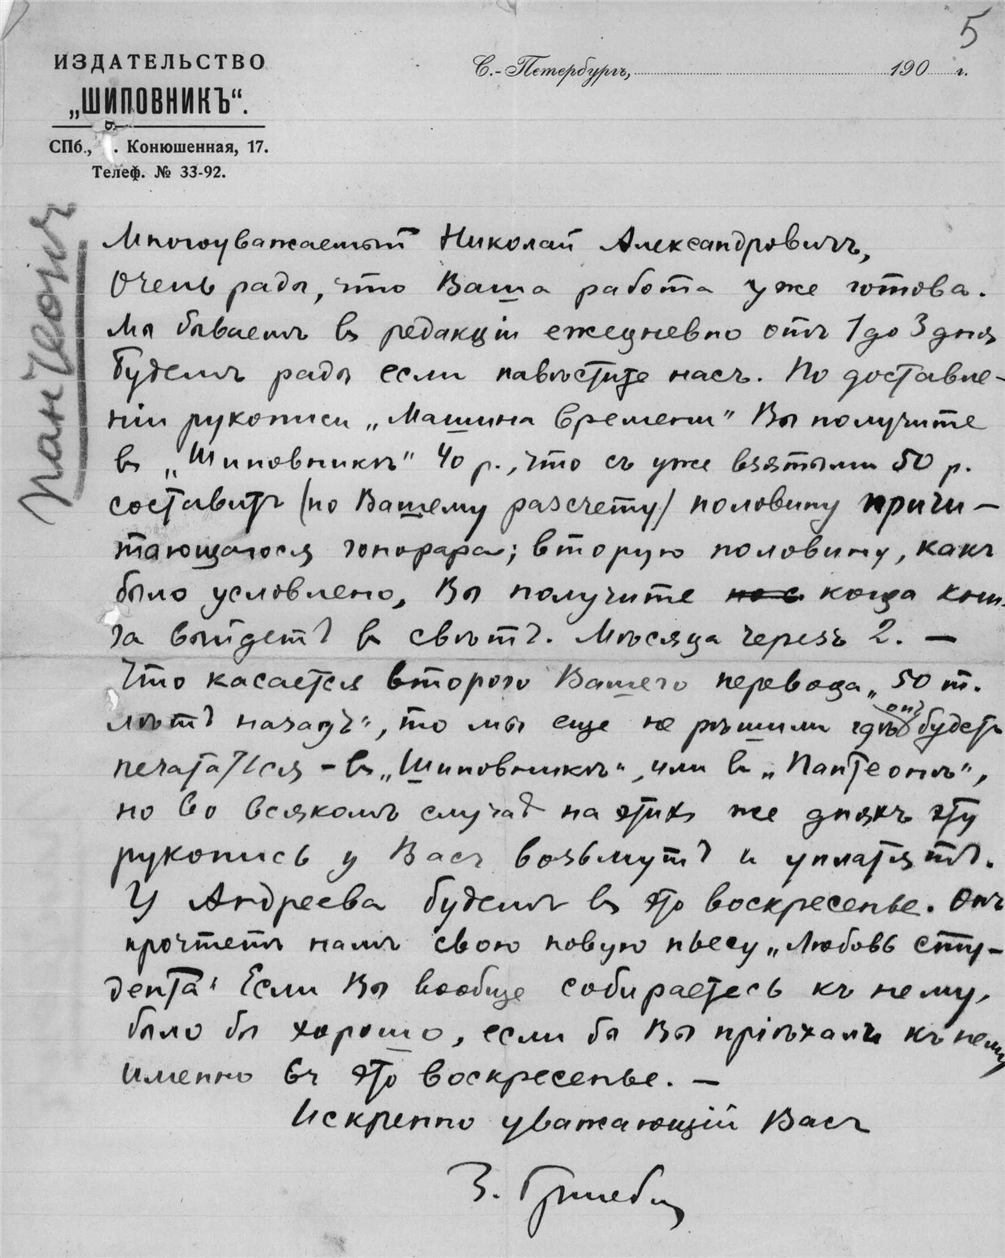 5
ИЗДАТЕЛЬСТВО
„ШИПОВНИКЪ“.
СПб., . Конюшенная, 17.
Телеф. № 33-92.
С.-Петербургъ, 190 г.
Пантеонъ
Многоуважаемый Николай Александровичъ,
Очень рады, что Ваша работа уже готова.
Мы бываемъ въ редакціи ежедневно отъ 1 до 3 дня
Будемъ рады если навѣстите насъ. По доставле-
ніи рукописи „Машина времени“ Вы получите
въ „Шиповникѣ“ 40 р., что съ уже взятыми 50 р.
составитъ (по Вашему разсчету) половину причи-
тающагося гонорара; вторую половину, какъ
было условлено, Вы получите когда кни-
га выйдетъ въ свѣтъ. Мѣсяца черезъ 2. —
Что касается второго Вашего перевода „50 т.
лѣтъ назадъ“, то мы еще не рѣшили гдѣ онъ будетъ
печататься – въ „Шиповникѣ“, или въ „Пантеонѣ“,
но во всякомъ случаѣ на этихъ же дняхъ эту
рукопись у Васъ возьмутъ и уплатятъ.
У Андреева будемъ въ это воскресенье. Онъ
прочтетъ намъ свою новую пьесу „Любовь сту-
дента“ Если Вы вообще собираетесь къ нему,
было бы хорошо, если бы Вы пріѣхали къ нему
именно въ это воскресенье. —
Искренно уважающій Васъ
З. Гржебин